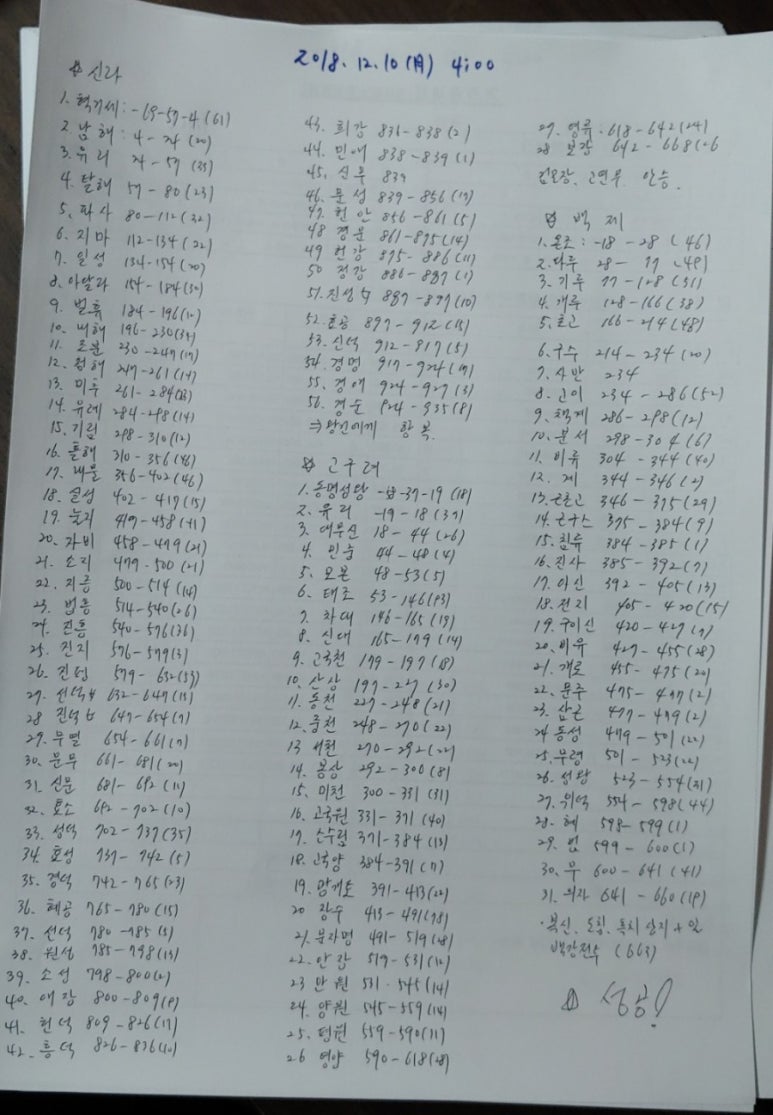 2018. 12. 10 (月) 4:00
☆ 신라
1. 혁거세 : -69-57-4 (61)
2. 남해 : 4 - 24 (20)
3. 유리 24 - 57 (33)
4. 탈해 57 - 80 (23)
5. 파사 80 - 112 (32)
6. 지마 112 - 134 (22)
7. 일성 134 - 154 (20)
8. 아달라 154 - 184 (30)
9. 벌휴 184 - 196 (12)
10. 내해 196 - 230 (34)
11. 조분 230 - 247 (17)
12. 첨해 247 - 261 (14)
13. 미추 261 - 284 (23)
14. 유례 284 - 298 (14)
15. 기림 298 - 310 (12)
16. 흘해 310 - 356 (46)
17. 내물 356 - 402 (46)
18. 실성 402 - 417 (15)
19. 눌지 417 - 458 (41)
20. 자비 458 - 479 (21)
21. 소지 479 - 500 (21)
22. 지증 500 - 514 (14)
23. 법흥 514 - 540 (26)
24. 진흥 540 - 576 (36)
25. 진지 576 - 579 (3)
26. 진평 579 - 632 (53)
27. 선덕女 632 - 647 (15)
28 진덕女 647 - 654 (7)
29. 무열 654 - 661 (7)
30. 문무 661 - 681 (20)
31. 신문 681 - 692 (11)
32. 효소 692 - 702 (10)
33. 성덕 702 - 737 (35)
34. 효성 737 - 742 (5)
35. 경덕 742 - 765 (23)
36. 혜공 765 - 780 (15)
37. 선덕 780 - 785 (5)
38. 원성 785 - 798 (13)
39. 소성 798 - 800 (2)
40. 애장 800 - 809 (9)
41. 헌덕 809 - 826 (17)
42. 흥덕 826 - 836 (10)
43. 희강 836 - 838 (2)
44. 민애 838 - 839 (1)
45. 신무 839
46. 문성 839 - 856 (17)
47. 헌안 856 - 861 (5)
48 경문 861 - 875 (14)
49 헌강 875 - 886 (11)
50 정강 886 - 887 (1)
51. 진성女 887 - 897 (10)
52. 효공 897 - 912 (15)
53. 신덕 912 - 917 (5)
54. 경명 917 - 924 (7)
55. 경애 924 - 927 (3)
56. 경순 924 - 935 (8)
⇒ 왕건에게 항복.
☆ 고구려
1. 동명성왕 -37-19 (18)
2. 유리 -19 - 18 (37)
3. 대무신 18 - 44 (26)
4. 민중 44 - 48 (4)
5. 모본 48 - 53 (5)
6. 태조 53 - 146 (93)
7. 차대 146 - 165 (19)
8. 신대 165 - 179 (14)
9. 고국천 179 - 197 (18)
10. 산상 197 - 227 (30)
11. 동천 227 - 248 (21)
12. 중천 248 - 270 (22)
13 서천 270 - 292 (22)
14. 봉상 292 - 300 (8)
15. 미천 300 - 331 (31)
16. 고국원 331 - 371 (40)
17. 소수림 371 - 384 (13)
18. 고국양 384 - 391 (7)
19. 광개토 391 - 413 (22)
20 장수 413 - 491 (78)
21. 문자명 491 - 519 (28)
22. 안장 519 - 531 (12)
23 안원 531 - 545 (14)
24. 양원 545 - 559 (14)
25. 평원 559 - 590 (31)
26 영양 590 - 618 (28)
27. 영류 618 - 642 (24)
28 보장 642 - 668 (26
검모잠, 고연무, 안승.
☆ 백제
1. 온조 : -18 - 28 (46)
2. 다루 28 - 77 (49)
3. 기루 77 - 128 (51)
4. 개루 128 - 166 (38)
5. 초고 166 - 214 (48)
6. 구수 214 - 234 (20)
7. 사반 234
8. 고이 234 - 286 (52)
9. 책계 286 - 298 (12)
10. 분서 298 - 304 (6)
11. 비류 304 - 344 (40)
12. 계 344 - 346 (2)
13. 근초고 346 - 375 (29)
14. 근구수 375 - 384 (9)
15. 침류 384 - 385 (1)
16. 진사 385 - 392 (7)
17. 아신 392 - 405 (13)
18. 전지 405 - 420 (15)
19. 구이신 420 - 427 (7)
20. 비유 427 - 455 (28)
21. 개로 455 - 475 (20)
22. 문주 475 - 477 (2)
23. 삼근 477 - 479 (2)
24 동성 479 - 501 (22)
25. 무령 501 - 523 (22)
26. 성왕 523 - 554 (31)
27. 위덕 554 - 598 (44)
28. 혜 598 - 599 (1)
29. 법 599 - 600 (1)
30. 무 600 - 641 (41)
31. 의자 641 - 660 (19)
· 복신, 도침, 흑치상지 + 일
백강전투 (663)
☆ 성공!